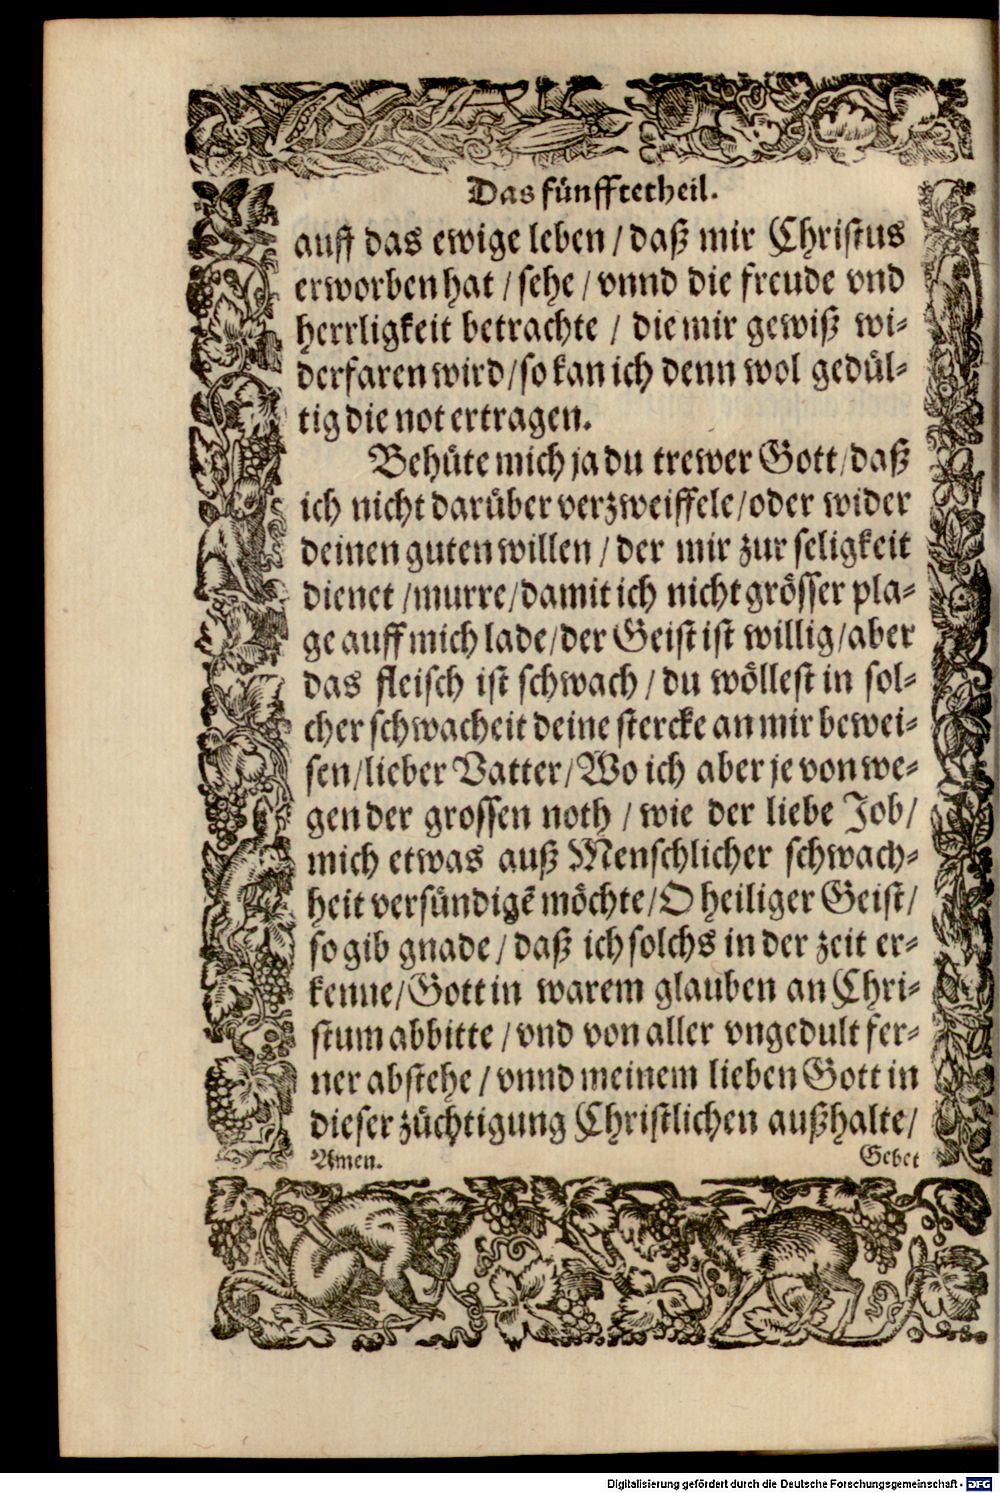 Das fünfftetheil.
auff das ewige leben / daß mir Christus
erworben hat / sehe / vnnd die freude vnd
herrligkeit betrachte / die mir gewiß wi-
derfaren wird / so kan ich denn wol gedül-
tig die not ertragen.
Behüte mich ja du trewer Gott / daß
ich nicht darüber verzweiffele / oder wider
deinen guten willen / der mir zur seligkeit
dienet / murre / damit ich nicht grösser pla-
ge auff mich lade / der Geist ist willig / aber
das fleisch ist schwach / du wöllest in sol-
cher schwacheit deine stercke an mir bewei-
sen / lieber Vatter / Wo ich aber je von we-
gen der grossen noth / wie der liebe Job /
mich etwas auß Menschlicher schwach-
heit versündigē möchte / O heiliger Geist /
so gib gnade / daß ich solchs in der zeit er-
kenne / Gott in warem glauben an Chri-
stum abbitte / vnd von aller vngedult fer-
ner abstehe / vnnd meinem lieben Gott in
dieser züchtigung Christlichen außhalte /
Amen. Gebet
Digitalisierung gefördert durch die Deutsche Forschungsgemeinschaft - DFG